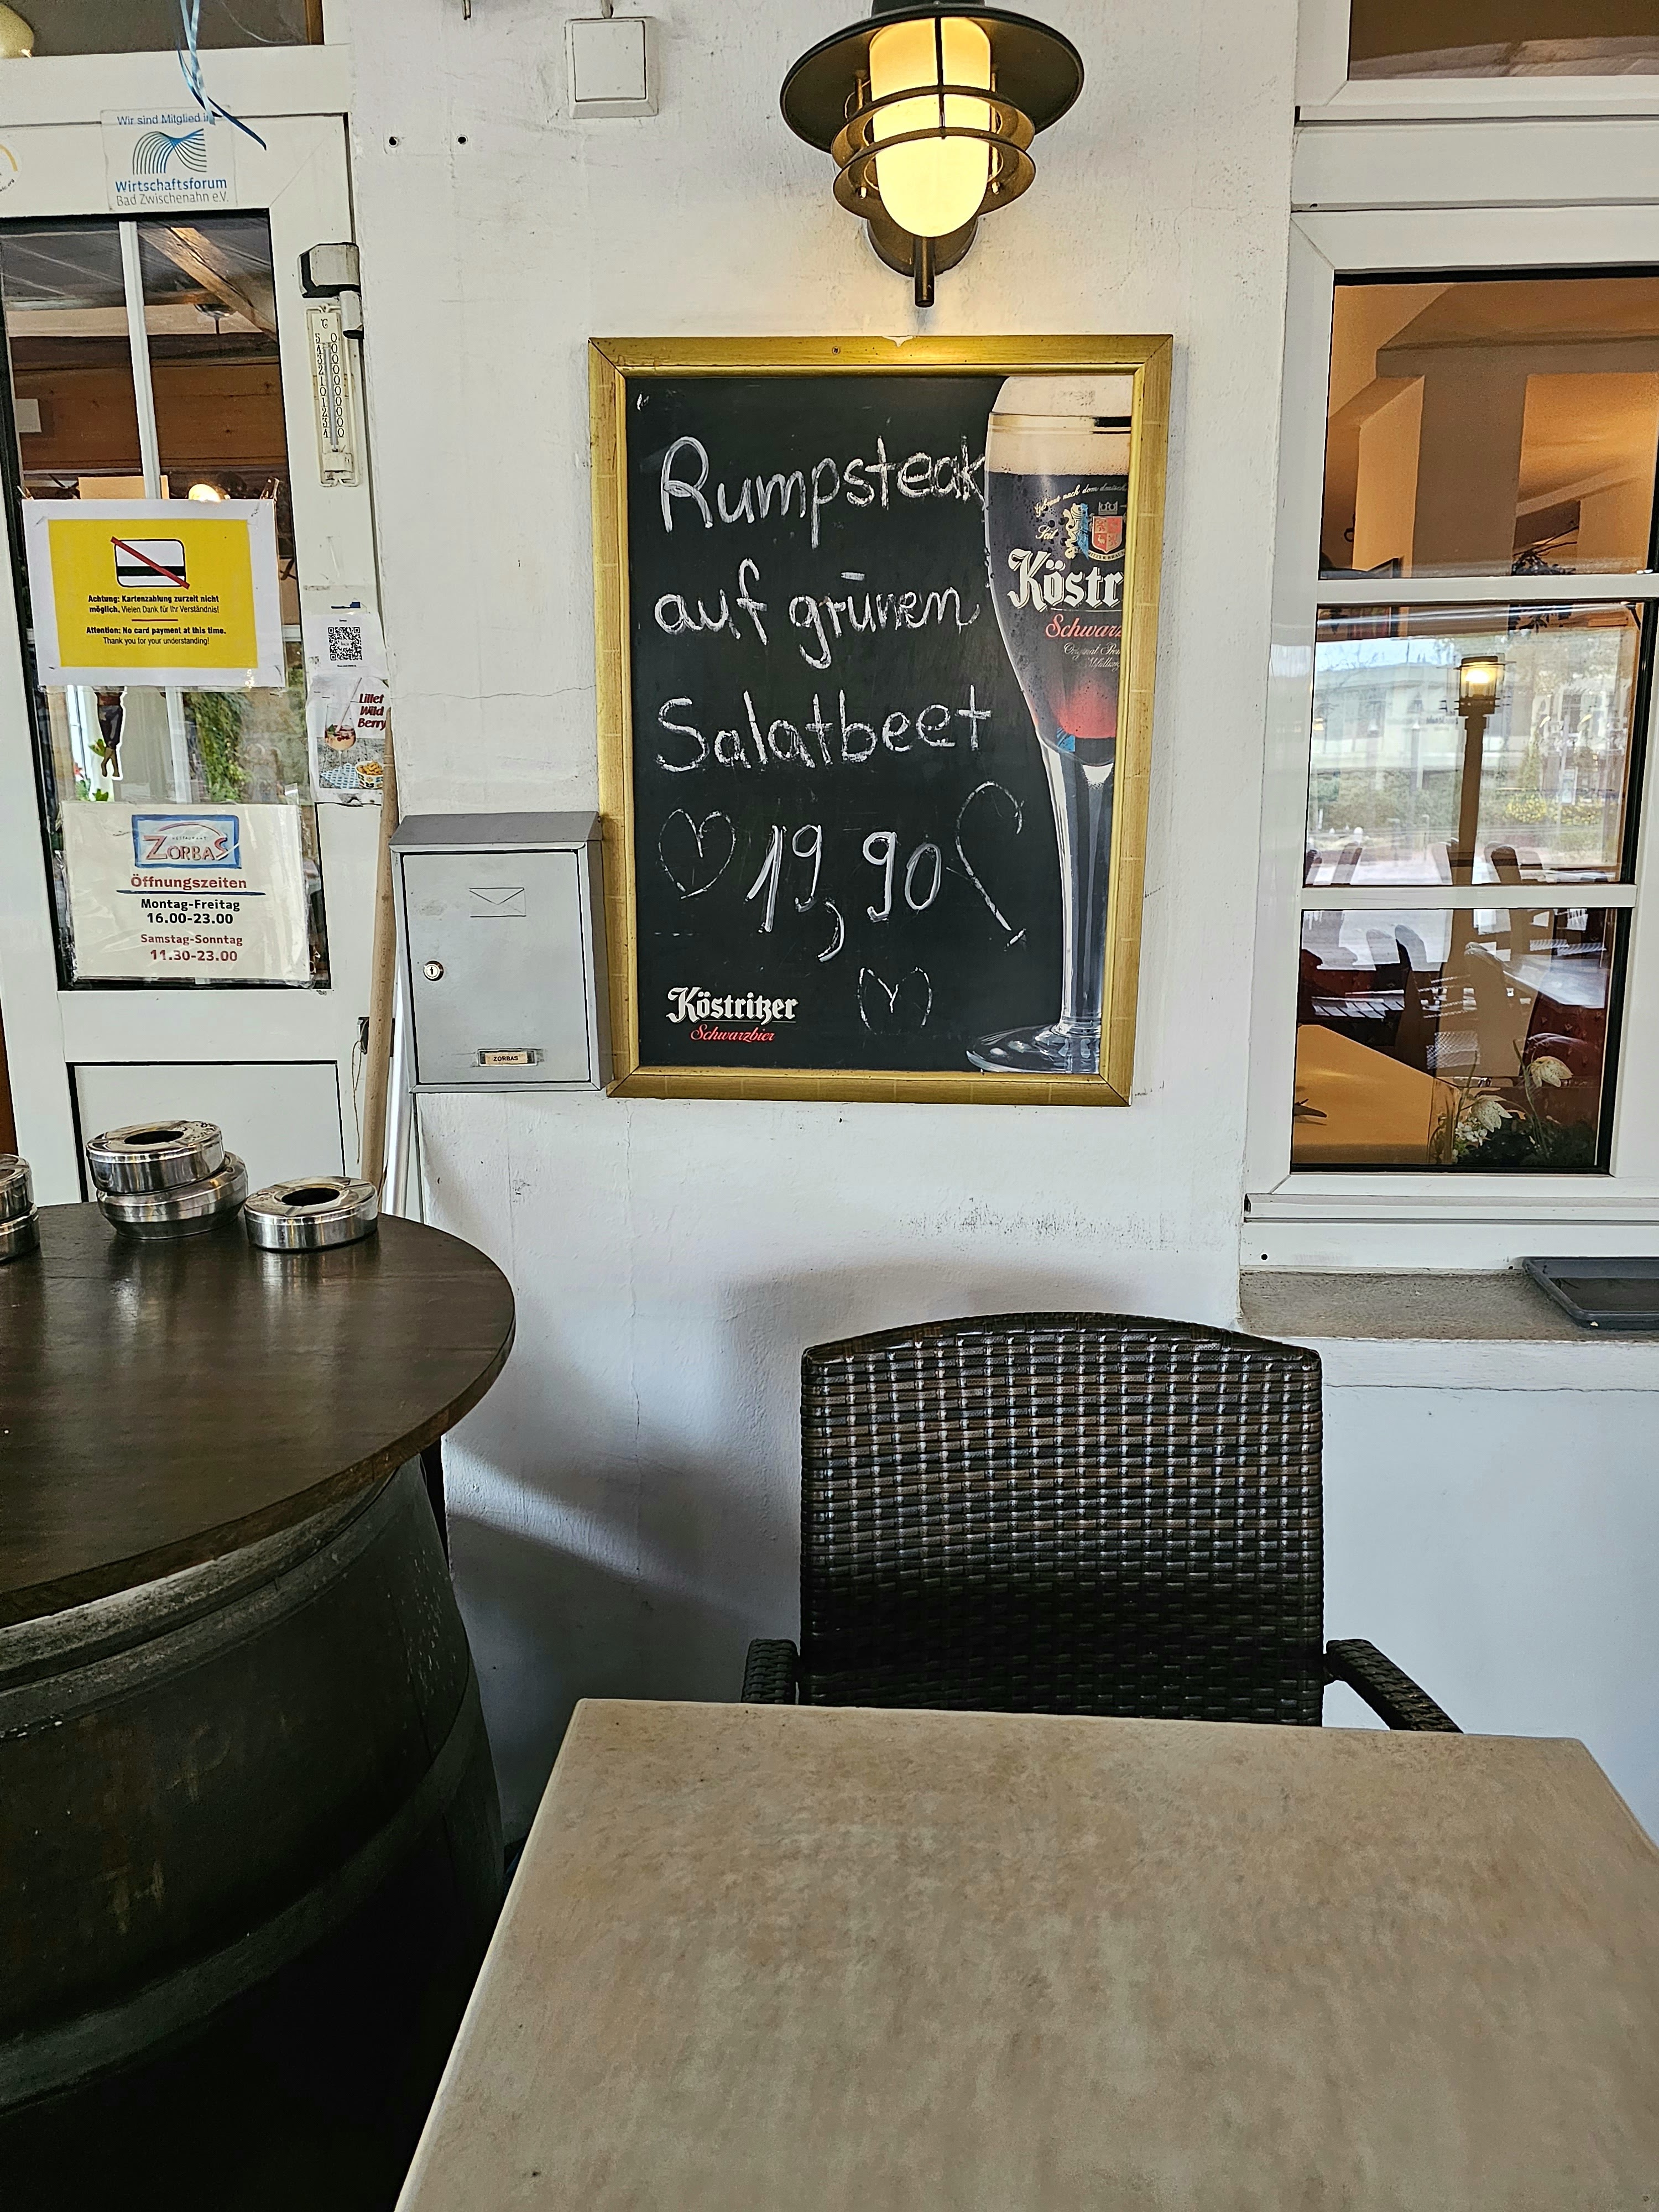 Wir sind Mitglied im
Wirtschaftsforum
Bad Zwischenahn e.V.
°C
Achtung: Kartenzahlung zurzeit nicht
möglich. Vielen Dank für Ihr Verständnis!
Attention: No card payment at this time.
Thank you for your understanding!
Lillet
Wild
Berry
RESTAURANT
ZORBAS
Öffnungszeiten
Montag-Freitag
16.00-23.00
Samstag-Sonntag
11.30-23.00
ZORBAS
Rumpsteak
auf grünen
Salatbeet
19,90
Gebraut nach dem deutschen
Seit
Köstr
Schwarz
Köstritzer
Schwarzbier